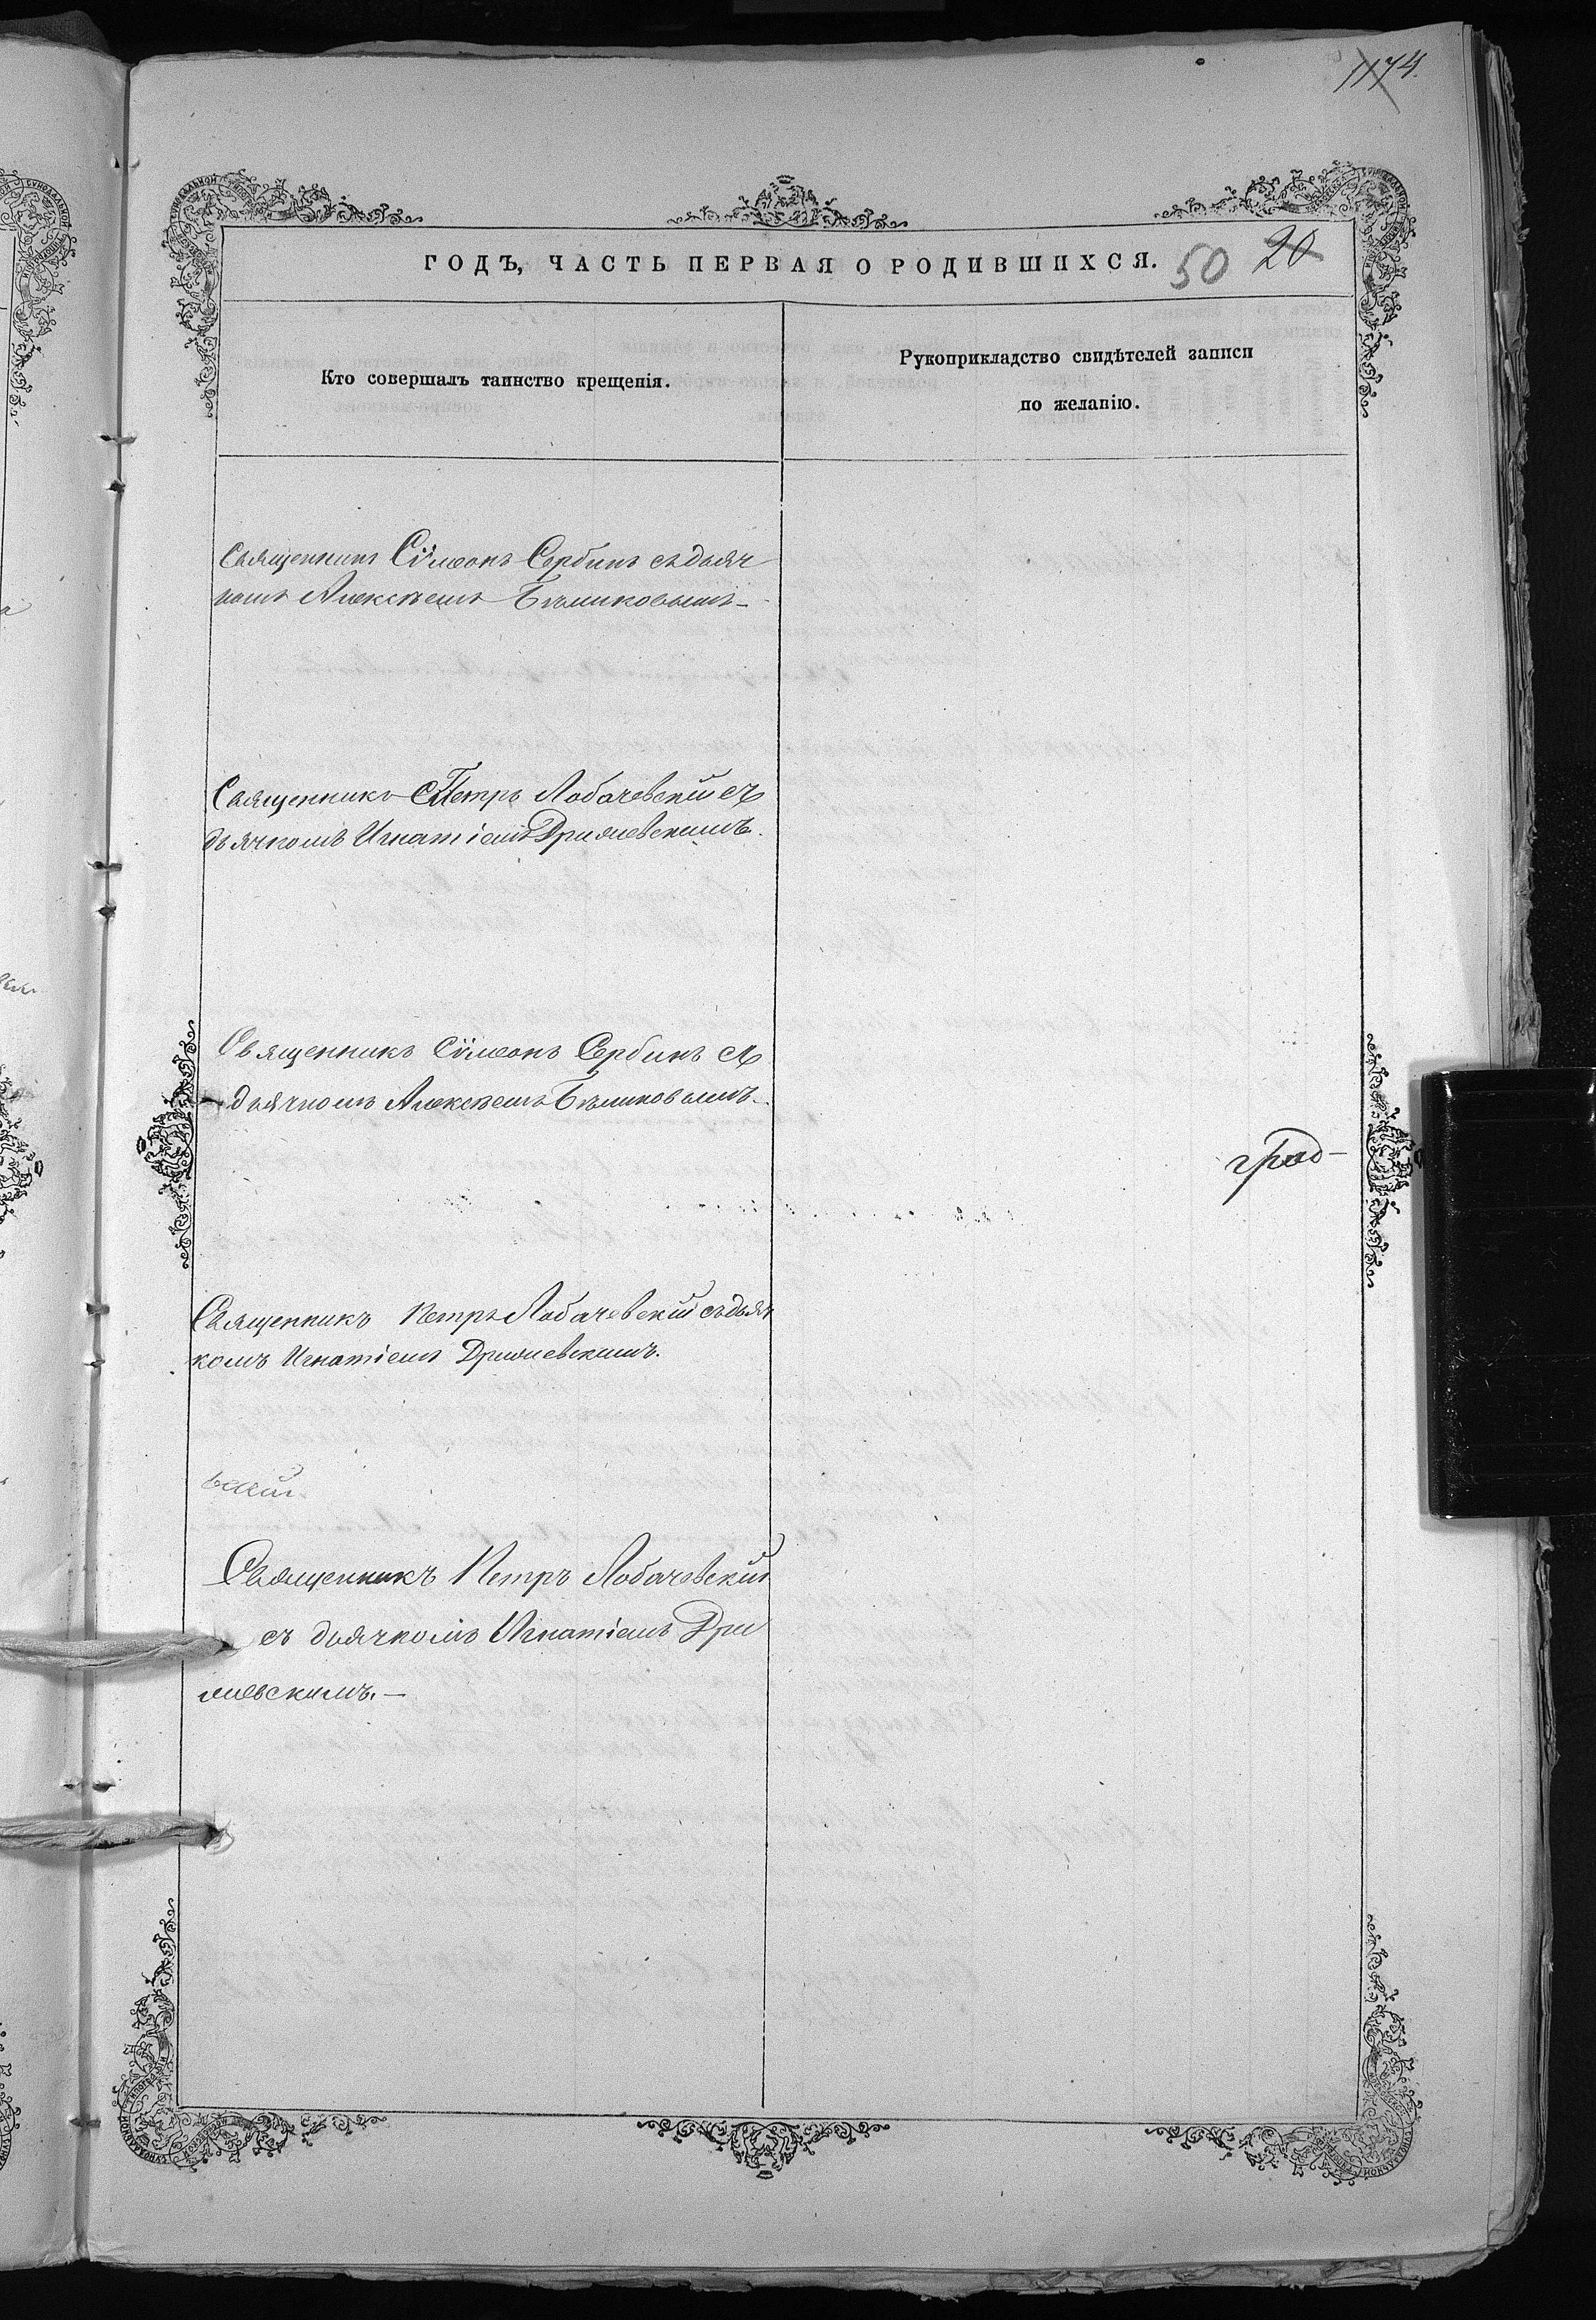 1174.
ГОДЪ, ЧАСТЬ ПЕРВАЯ О РОДИВШИХСЯ.
50 20
Кто совершалъ таинство крещенія.
Рукоприкладство свидѣтелей записи
по желанію.
Священникъ Сѵмеонъ Сербинъ съ дьяч
комъ Алексѣемъ Бѣликовымъ
Священникъ Петръ Лобачевскій съ
дьячкомъ Игнатіемъ
Священникъ Сѵмеонъ Сербинъ съ
дьячкомъ Алексѣемъ Бѣликовымъ.
град-
Священникъ Петръ Лобачевскій съ дьяч
комъ Игнатіемъ
Священникъ Петръ Лобачевскій
съ дьячкомъ Игнатіемъ Дри